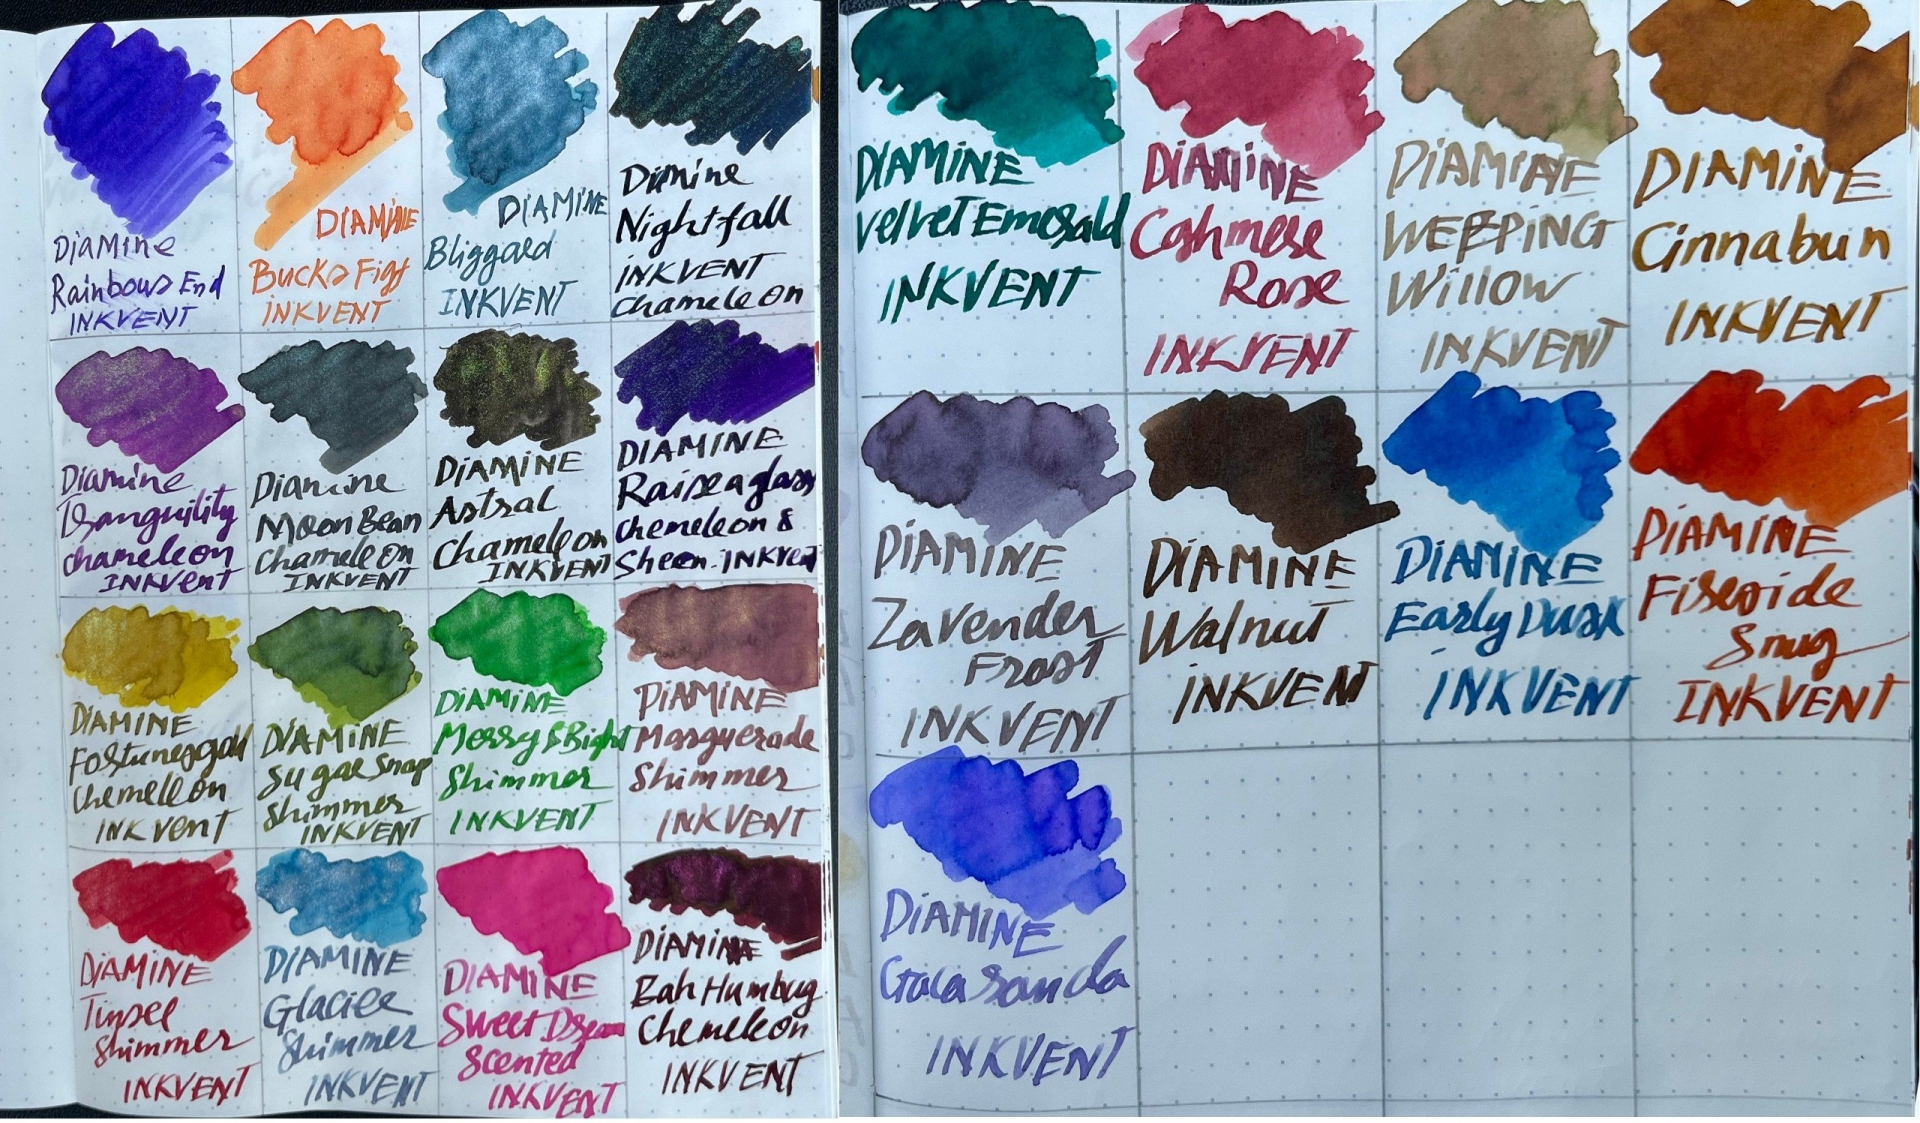 Diamine
Rainbows End
INKVENT
DIAMINE
Bucks Figs
INKVENT
DIAMINE
Bliggard
INKVENT
Diamine
Nightfall
INKVENT
Chameleon
Diamine
Tranquility
chameleon
INKVent
Diamine
Moon Bean
Chameleon
INKVENT
DiAMINE
Astral
Chameleon
INKVENT
DIAMINE
Raise a glass
Chemeleon &
Sheen. INKVent
DIAMINE
Fortunesgold
Chemeleon
INKvent
DIAMINE
Sugar Snap
Shimmer
INKVENT
DIAMINE
Merry & Bright
Shimmer
INKVENT
DIAMINE
Masquerade
Shimmer
INKVENT
DIAMINE
Tinsel
Shimmer
INKVENT
DIAMINE
Glacier
Shimmer
INKVENT
DIAMINE
Sweet Dream
Scented
INKVENT
DIAMINE
Bah Humbug
Chemeleon
INKVENT
DIAMINE
Velvet Emerald
INKVENT
DIAMINE
Cashmere
Rose
INKVENT
DIAMINE
WEEPING
Willow
INKVENT
DIAMINE
Cinnabun
INKVENT
DIAMINE
Lavender
Frost
INKVENT
DIAMINE
Walnut
INKVENT
DIAMINE
Early Dusk
INKVENT
DIAMINE
Fireside
Snug
INKVENT
DIAMINE
Gacaranda
INKVENT